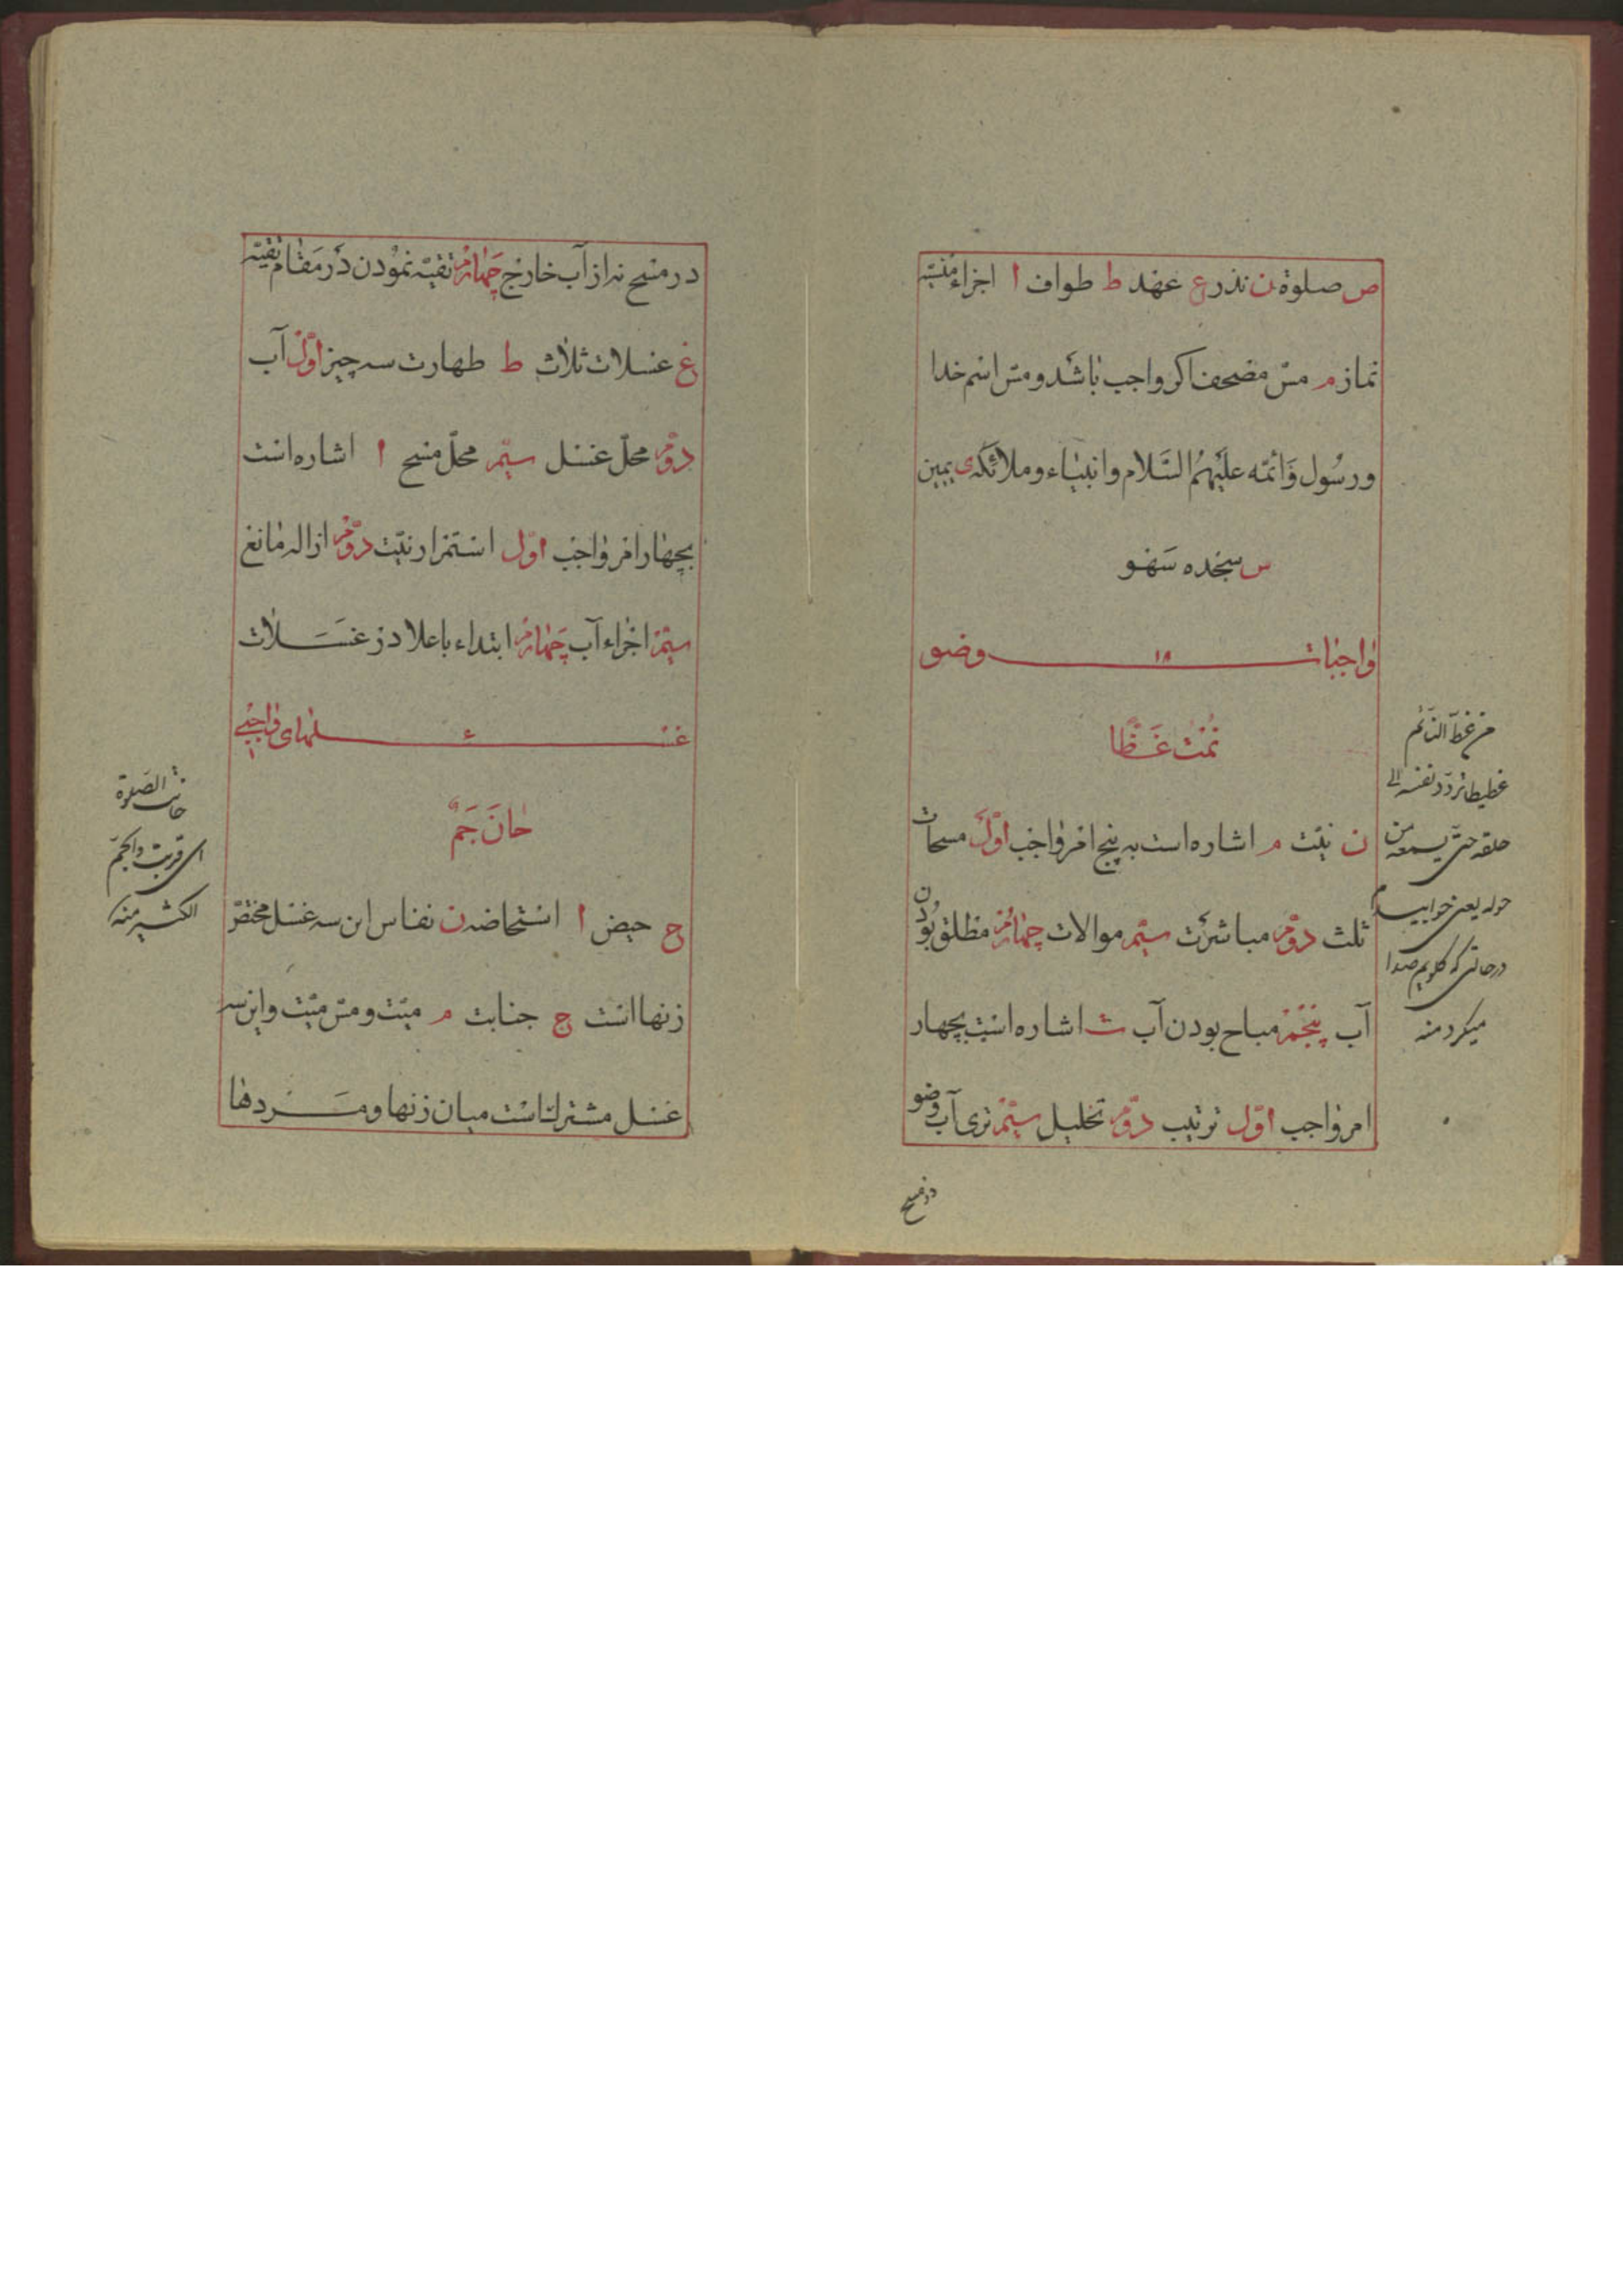 ص صلوة ن نذر ع عهد ط طواف ا اجزاء منسیّه
نماز م مسّ مصحف اکر واجب باشد و مسّ اسم خدا
و رسُول وَ ائمّه علیَهِمُ السَّلام و انبیاء و ملائکه ی یمین
س سجده سَهو
واجبات ۱۸ وضو
نمْتُ غَطًّا
ن نیّت م اشاره است به پنج امر واجب اوّل مسحات
ثلث دوّم مباشرت سیّم موالات چهارم مطلق بُودن
آب پنجم مباح بودن آب ت اشاره است بچهار
امر واجب اوّل ترتیب دوّم تخلیل سیّم تری آب وضو
در مسح
من غطّ النائم
غطیطا تردّد نفسه الی
حلقه حتّی یسمعه من
حوله یعنی خوابیدم
در حالتی که کلویم صدا
میکرد منه
در مسح نه از آب خارج چَهارم تقیّه نمودن در مقام تقیّه
غ غسلات ثلاث ط طهارت سه چیز اوّل آب
دوّم محلّ غسل سیّم محلّ مسح ا اشاره است
بچهار امر واجب اوّل استمرار نیّت دوّم ازاله مانع
سیّم اجراء آب چَهارم ابتداء باعلا در غَسَلات
غسلهای واجبی ۶
حانَ جَمّ
ح حیض ا استحاضه ن نفاس این سه غسل مختصّ
زنها است ج جنابت م میّت و مسّ میّت و این سه
غسل مشترک است میان زنها و مَردها
حانت الصّلوة
ای قربت والجمّ
الکثیر منه